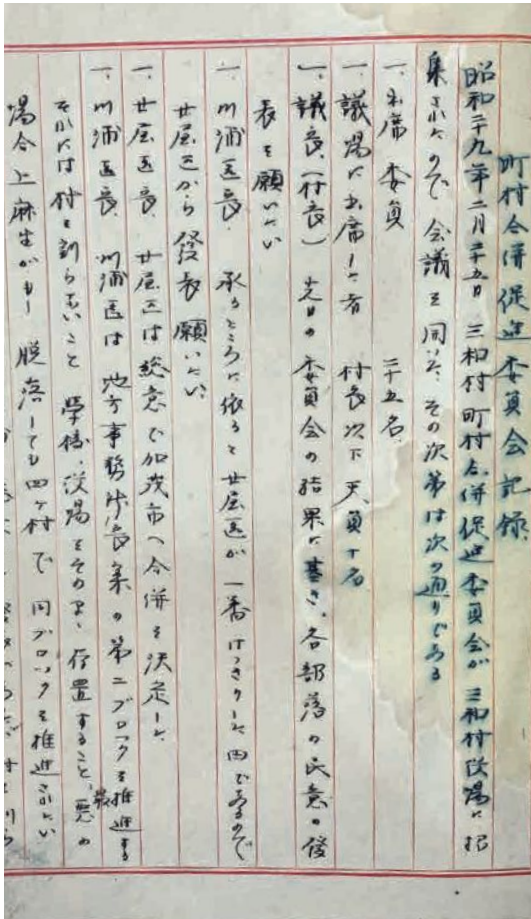 町村合併促進委員会記録
昭和二十九年二月二十五日 三和村町村合併促進委員会が三和村役場に招
集されたので会議を開いた、その次第は次の通りである
一、出席委員 二十五名、
一、議場に出席した者 村長以下吏員十名
一、議長(村長) 先日の委員会の結果に基き、各部落の民意の発
表を願いたい
一、川浦区長、 承るところに依ると廿屋区が一番はっきりした由であるので
廿屋区から発表願いたい、
一、廿屋区長、 廿屋区は総意で加茂市へ合併を決定した
一、川浦区長、 川浦区は地方事務所長案の第二ブロックを推進する
それには村を割らないこと 学校、役場をそのまゝ存置すること、最悪の
場合上麻生がもし脱落しても四ヶ村で同ブロックを推進されたい